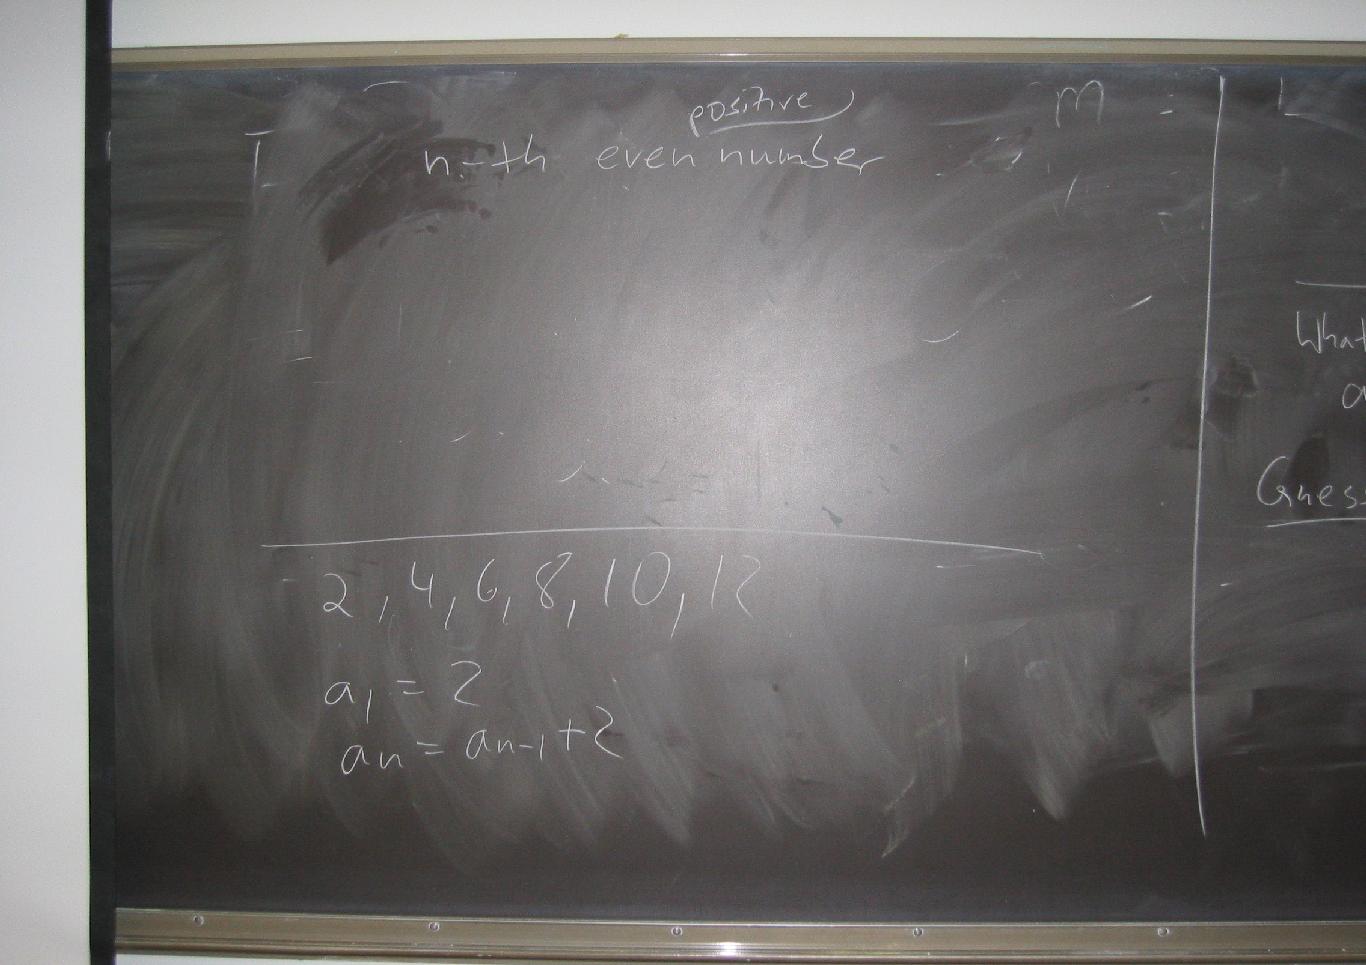 positive
n-th even number
m =
2, 4, 6, 8, 10, 12
a₁ = 2
aₙ = aₙ₋₁ + 2
What
a
Gues